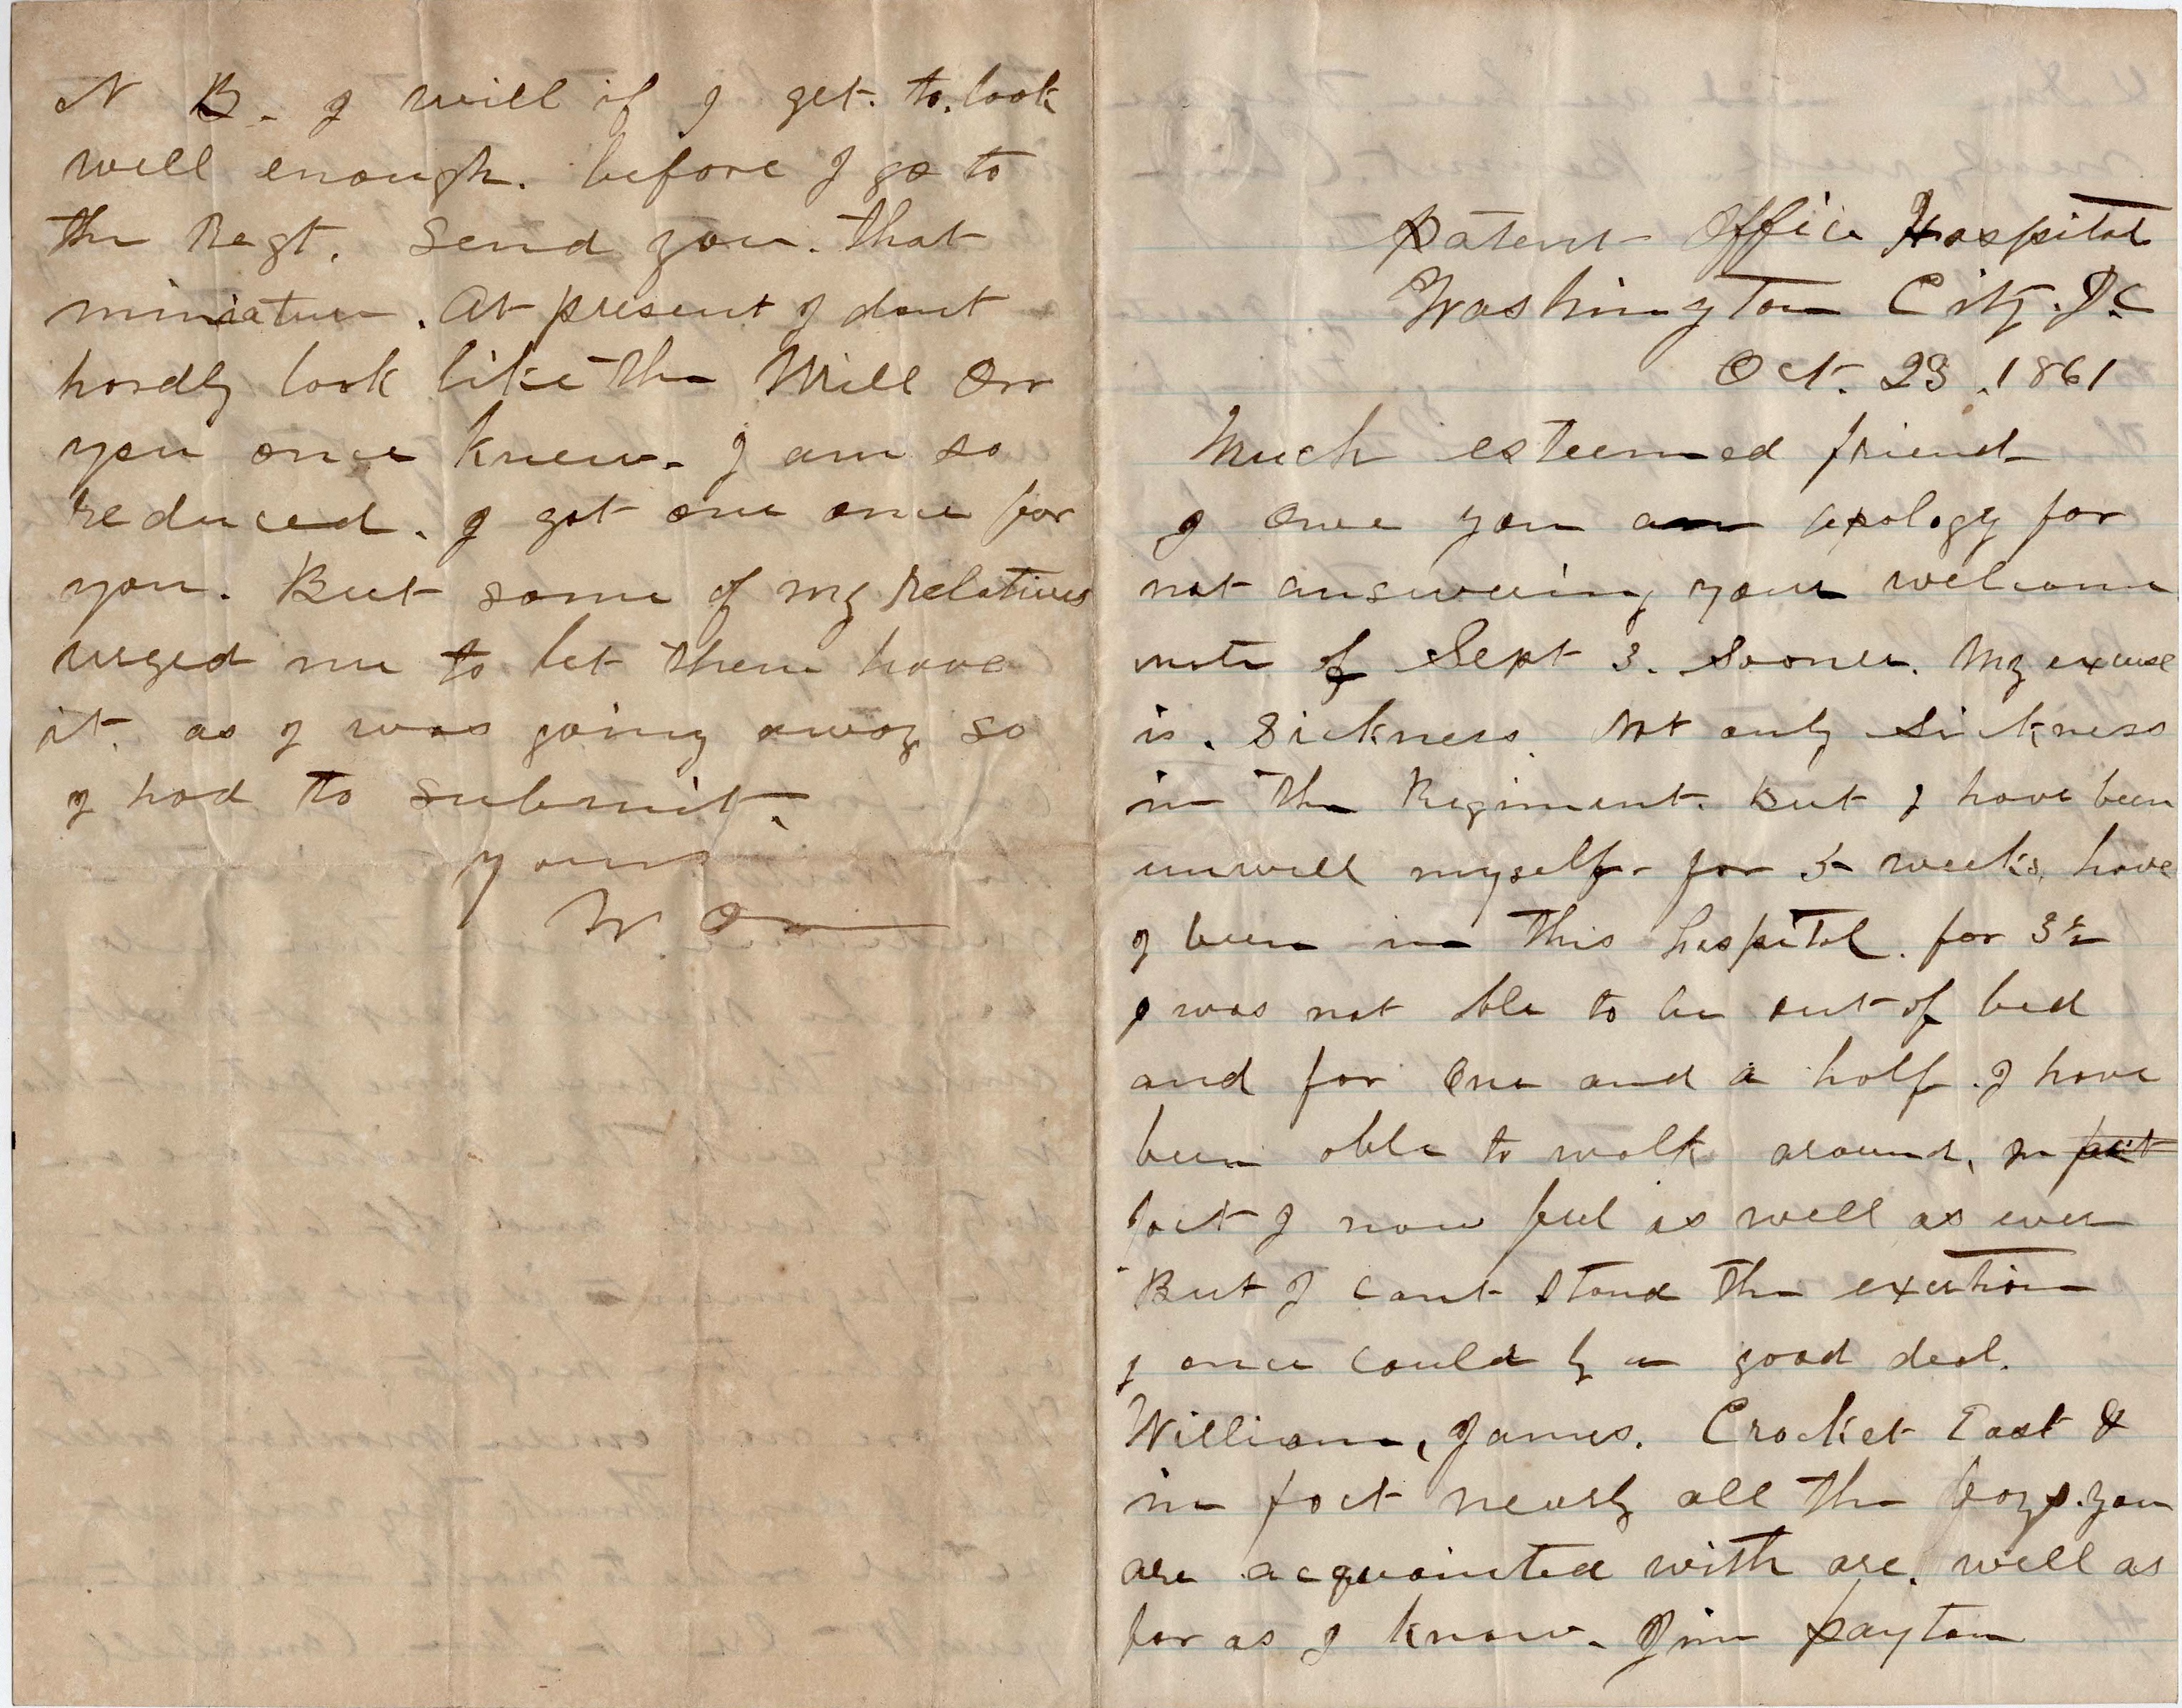 Patent Office Hospital
Washington City. D.C
Oct. 23, 1861
Much esteemed friend
I owe you an apology for
not answering your welcome
note of Sept 3. Sooner. My excuse
is. Sickness. Not only Sickness
in the Regiment. But I have been
unwell myself for 5 weeks, have
I been in this hospital. for 3½
I was not able to be out of bed
and for One and a half. I have
been able to walk around, In fact
fact I now feel as well as ever
But I cant stand the exertion
I once could by a good deal.
William, James. Crocket East &
in fact nearly all the boys. you
are acquainted with are. well as
far as I know. Jim Payton
N B. I will if I get. to. look
well enough. before I go to
the Regt. Send you. that
miniature. At present I dont
hardly look like the Will Orr
you once knew. I am so
reduced. I got one once for
you. But some of my relatives
urged me to let them have
it. as I was going away so
I had to submit.
yours
W Orr